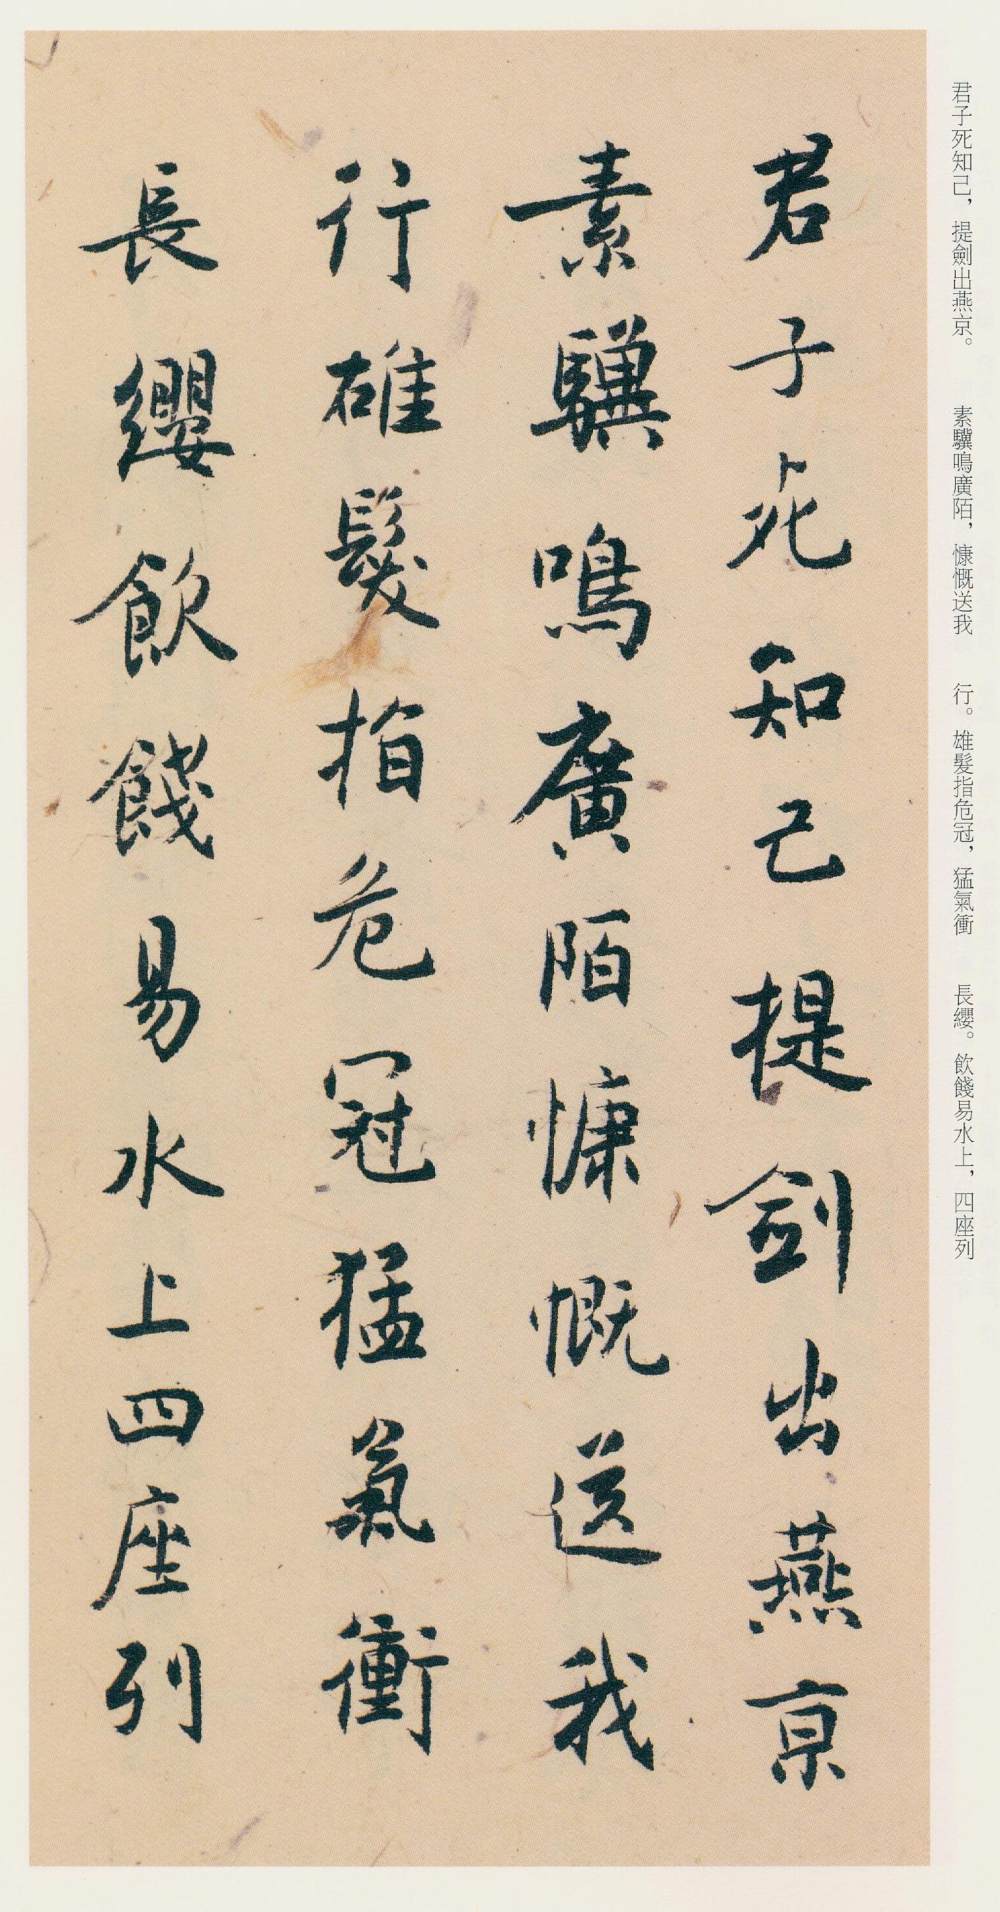 君子死知己，提劍出燕京。 素驥鳴廣陌，慷慨送我 行。雄髮指危冠，猛氣衝 長纓。飲餞易水上，四座列
君子死知己提劍出燕京
素驥鳴廣陌慷慨送我
行雄髮指危冠猛氣衝
長纓飲餞易水上四座列